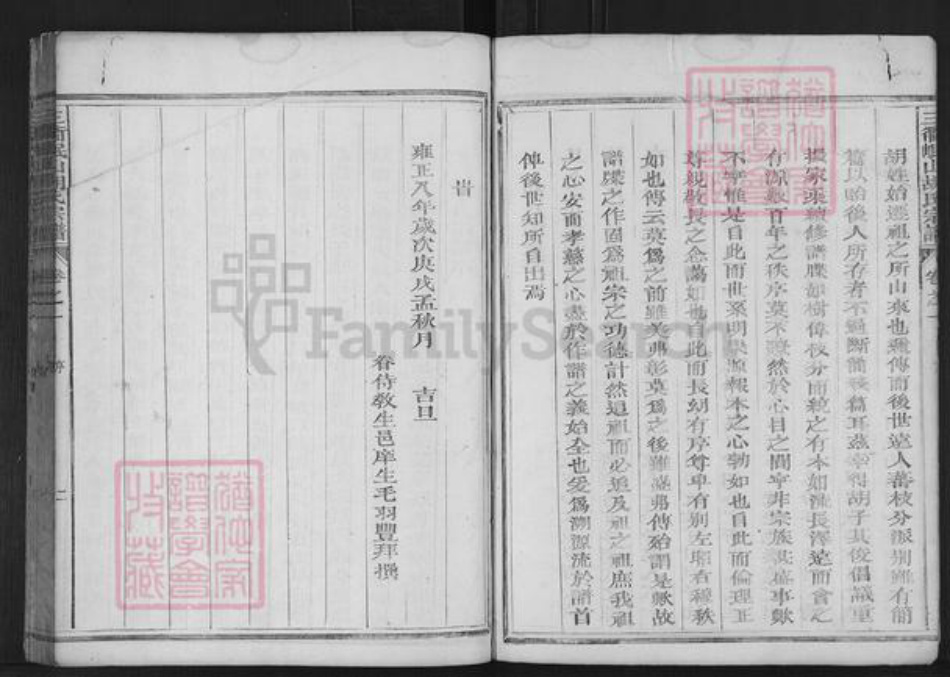 胡姓始遷祖之所由來也遞傳而後世遠人蕃枝分派別雖有簡
篇以貽後人所存者不過斷簡殘篇耳茲幸得胡子某俊倡議重
家乘續修譜牒如樹偉枝分而統之有本如流長澤遠而會之
有源數百年之秩序莫不瞭然於心目之間寧非宗族盛事歟
不寧惟是自此而世系明與源報本之心勃如也自此而倫理正
尊親敬長之念藹如也自此而長幼有序尊卑有別左昭右穆秩
如也傳云莫爲之前雖美弗彰莫爲之後雖盛弗傳殆謂是歟故
譜牒之作固爲祖宗之功德計然追祖而必追及祖之祖庶我祖
之心安而孝慈之心盡於作譜之義始全也爰爲溯源流於譜首
俾後世知所自出焉
旹
雍正八年歲次庚戌孟秋月 吉旦
眷侍教生邑庠生毛羽豐拜撰
三衢峴山胡氏宗譜 卷之一
三衢峴山胡氏宗譜 卷之一 序 二
FamilySearch
猶他家
譜學會
收藏
猶他家
譜學會
收藏